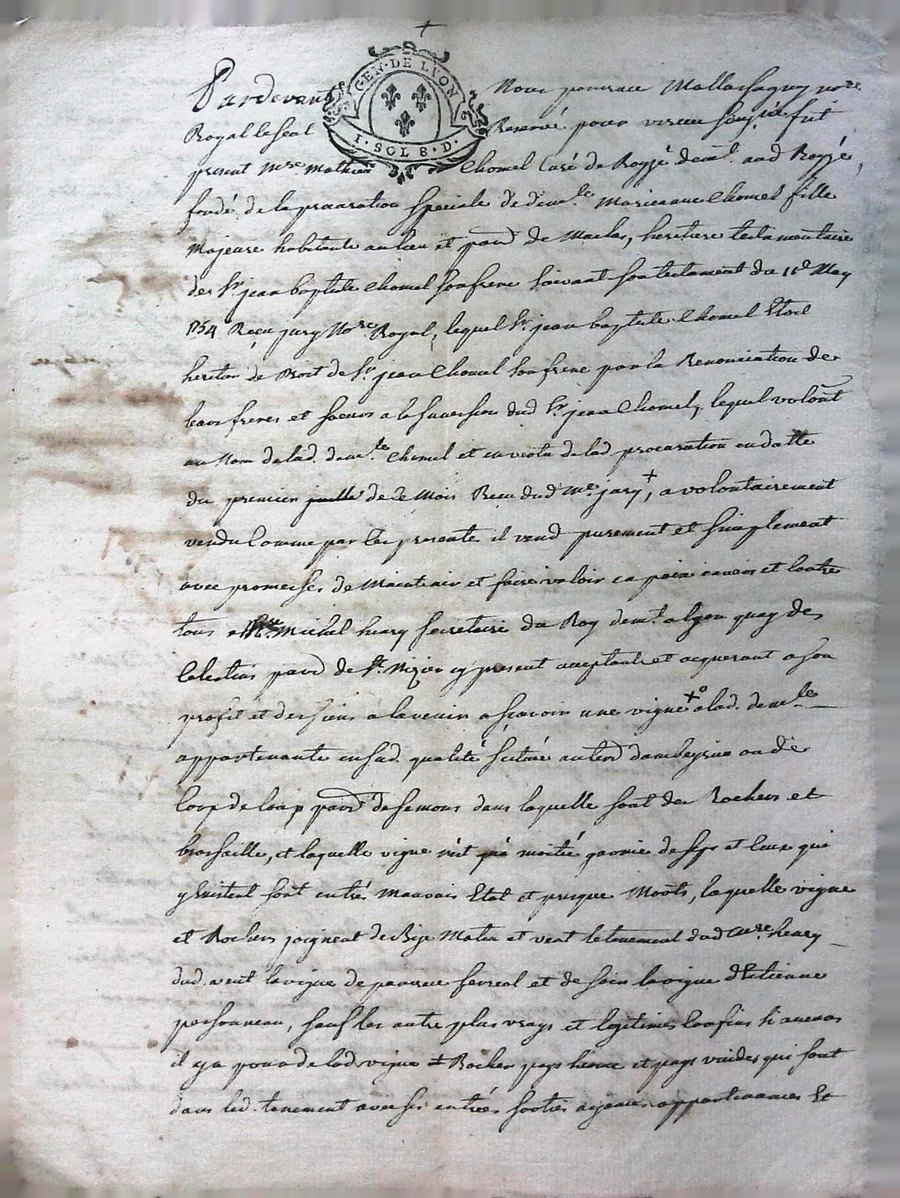 GEN · DE LYON
1 · SOL 8 · D ·
Pardevant Nous pancrace Mallassagny no.re
Royal le seal Reservé pour vireu soussigné fut
present Mre Mathieu Chomel Curé de Royzé dem.t aud Royzé,
fondé de la procuration speciale de dem.lle Marianne Chomel fille
Majeure habitante au lieu et parr.e de Maclas, heritiere testamentaire
de Sr jean baptiste Chomel son frere suivant son testament du 11e May
1754 Reçu jury No.re Royal, lequel Sr jean baptiste Chomel Etoit
heritier de Droit de Sr jean Chomel son frere par la Renonciation de
leurs freres et soeurs a la succession dud Sr jean Chomel, lequel volont
au Nom de lad. dem.lle Chomel et en vertu de lad procuration en datte
du premier de ce Mois Recu dud Me jary +, a volontairement
vendu Comme par les presente il vend purement et simplement
avec promesses de Maintenir et faire valoir envers et contre
tous a Mre Michel henry secretaire du Roy dem.t a lyon quay des
Celestins parr.e de St Nizier cy present acceptant et acquerant a son
profit et des siens a lavenir a scavoir une vigne + a lad. dem.lle
appartenante en sad. qualité scituée au ter.d dambeyrieu ou de
loup de loup parr.e de semons dans laquelle sont des Rochers et
brossaille, et laquelle vigne n'est qu'a moitié garnie de seps et Ceux qui
y Existent sont en trés Mauvais Etat et presque Morts, laquelle vigne
et Rochers joignent de Bize Matin et vent le tenement dud Mre henry
dud. vent la vigne de pancrace fevreal et de soir la vigne d'Etienne
personneau, sauf les autre plus vrays et legitimes Confins si aucuns
il y a de lad vigne Rocher pays herme et pays vuides qui sont
dans led. tenement avec ses entrées sorties aizances appartenances Et